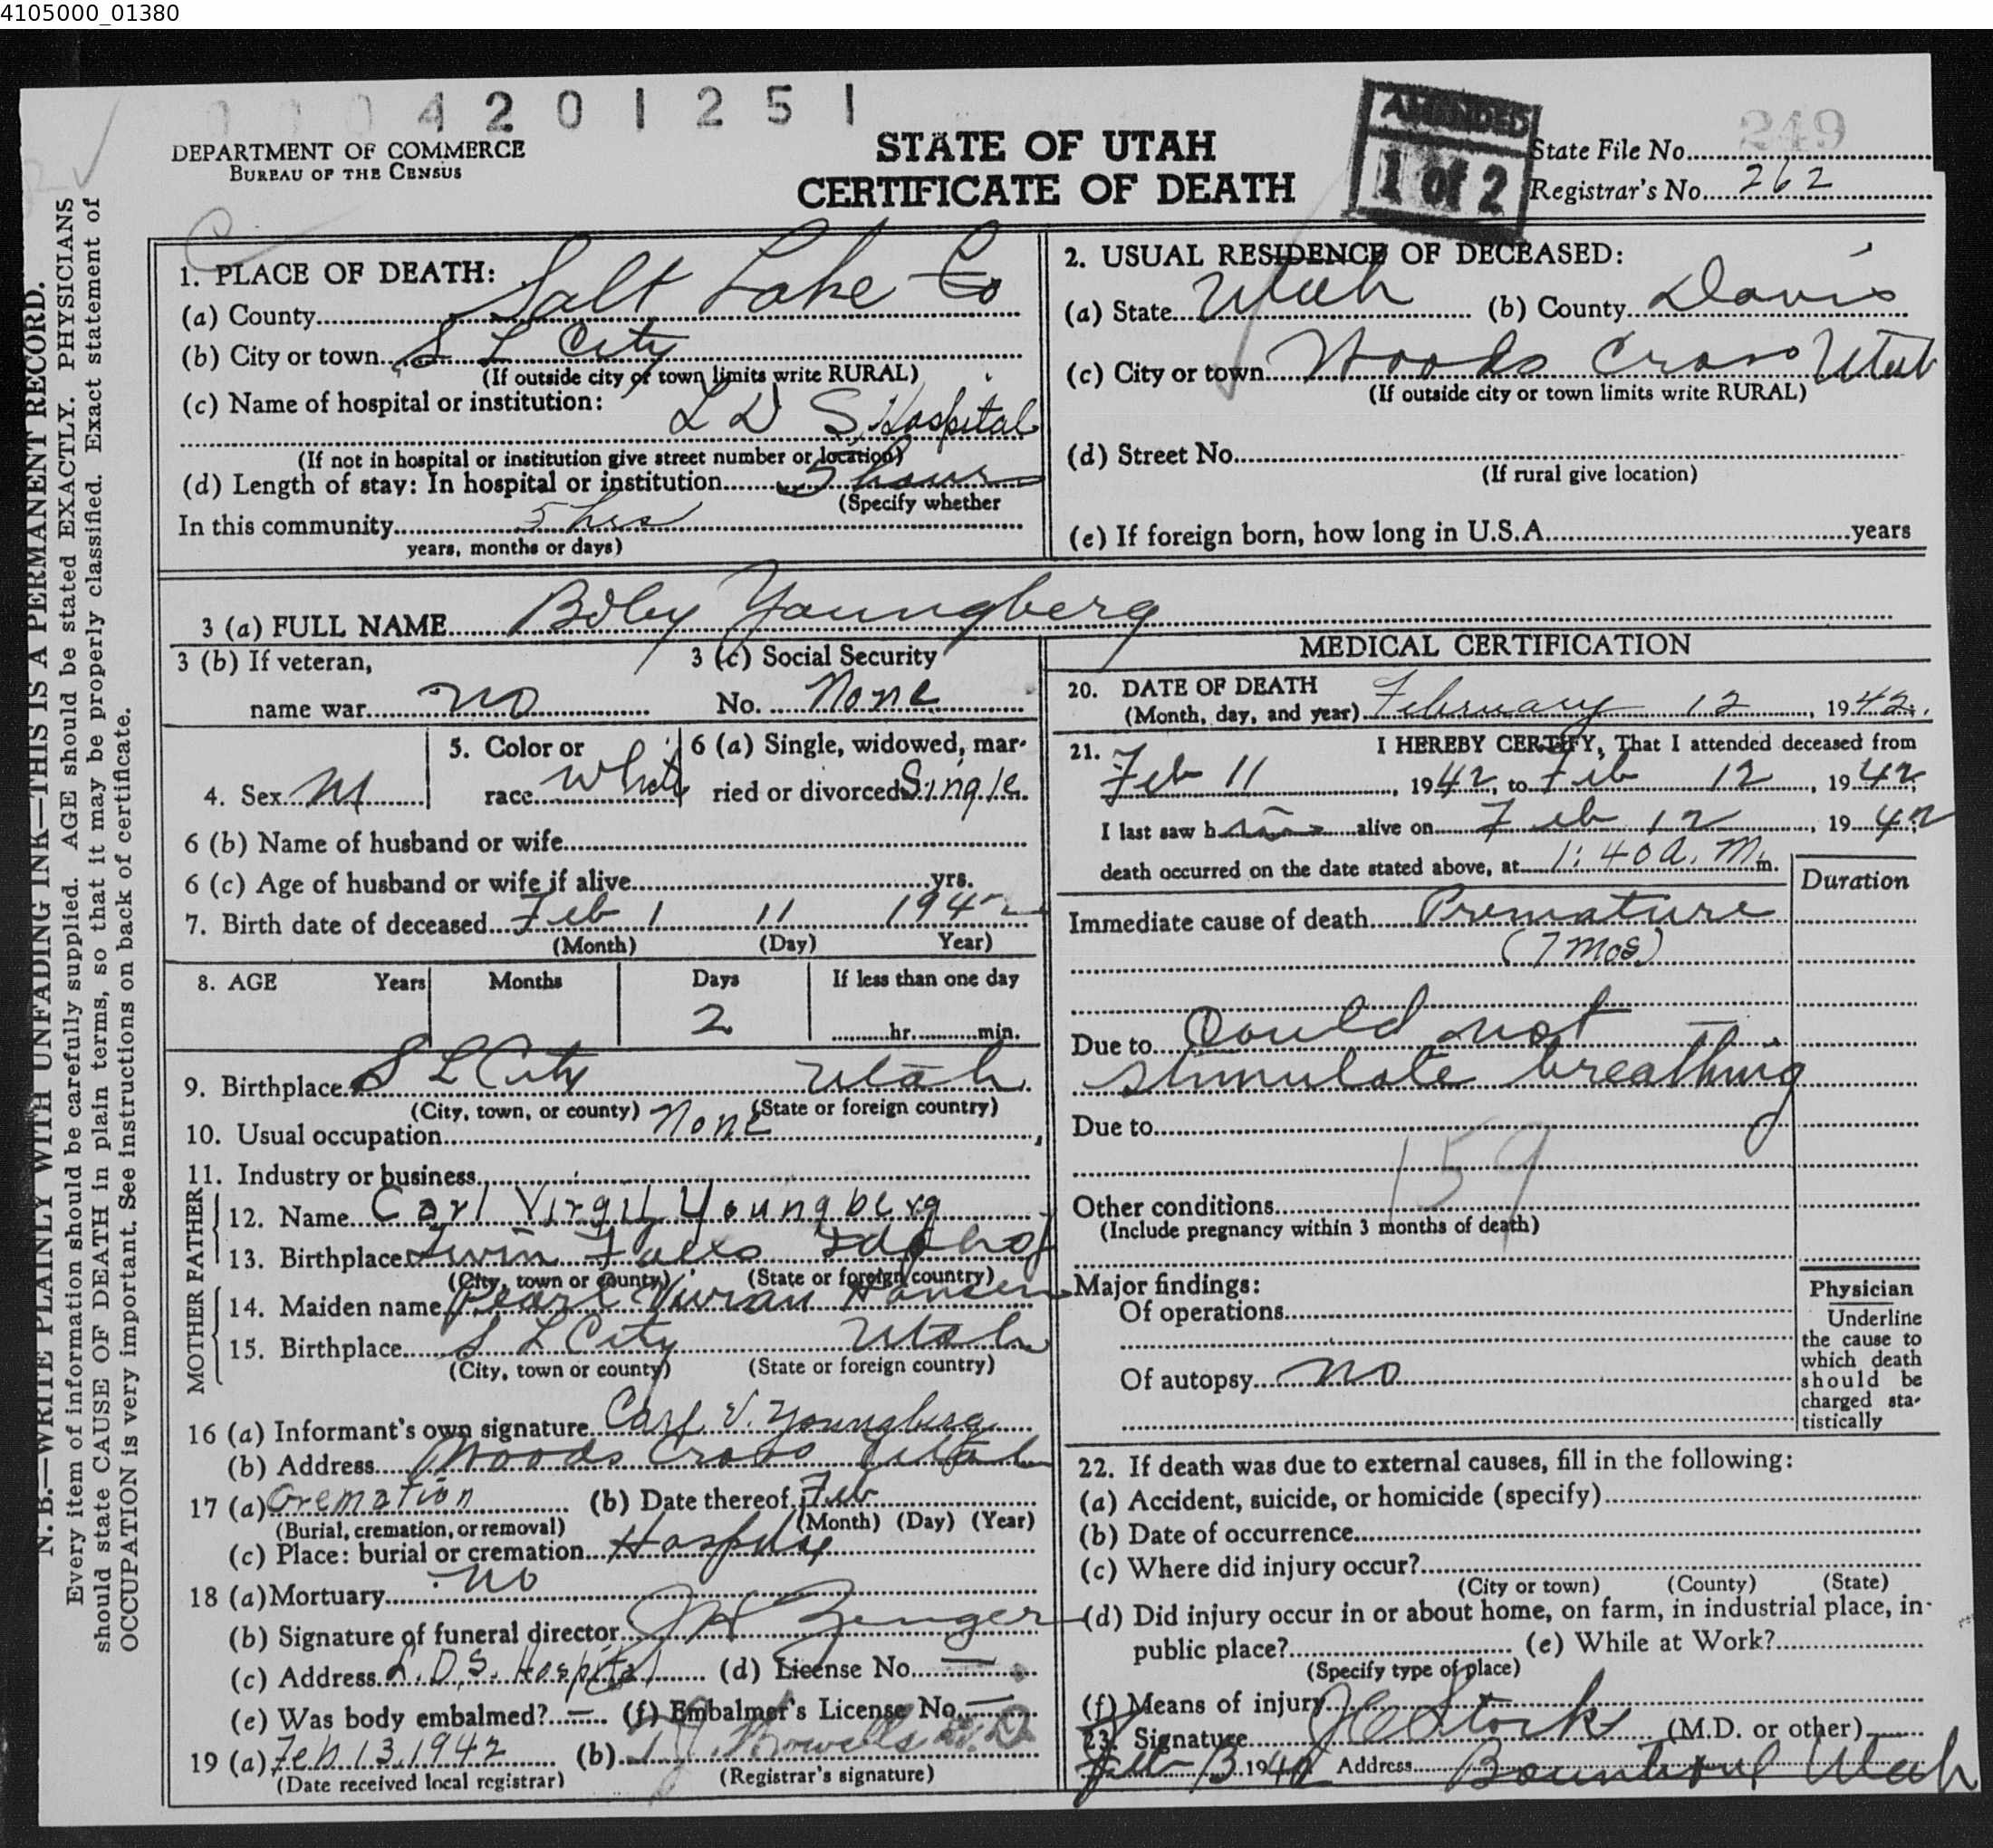 4105000_01380
0004201251
DEPARTMENT OF COMMERCE
BUREAU OF THE CENSUS
STATE OF UTAH
CERTIFICATE OF DEATH
AMENDED
1 of 2
State File No. 249
Registrar's No. 262
N. B.—WRITE PLAINLY WITH UNFADING INK—THIS IS A PERMANENT RECORD.
Every item of information should be carefully supplied. AGE should be stated EXACTLY. PHYSICIANS
should state CAUSE OF DEATH in plain terms, so that it may be properly classified. Exact statement of
OCCUPATION is very important. See instructions on back of certificate.
1. PLACE OF DEATH:
(a) County Salt Lake Co
(b) City or town S L City
(If outside city or town limits write RURAL)
(c) Name of hospital or institution:
L D S Hospital
(If not in hospital or institution give street number or location)
(d) Length of stay: In hospital or institution 5 hours
(Specify whether
In this community 5 hrs
years, months or days)
2. USUAL RESIDENCE OF DECEASED:
(a) State Utah (b) County Davis
(c) City or town Woods Cross Utah
(If outside city or town limits write RURAL)
(d) Street No.
(If rural give location)
(e) If foreign born, how long in U.S.A. years
3 (a) FULL NAME Youngberg
3 (b) If veteran,
name war no
3 (c) Social Security
No. None
4. Sex M
5. Color or
race White
6 (a) Single, widowed, mar-
ried or divorced Single
6 (b) Name of husband or wife
6 (c) Age of husband or wife if alive yrs.
7. Birth date of deceased Feb 11 1942
(Month) (Day) Year)
8. AGE Years Months Days If less than one day
2 hr. min.
9. Birthplace S L City Utah
(City, town, or county) (State or foreign country)
10. Usual occupation None
11. Industry or business
FATHER
12. Name Carl Virgil Youngberg
13. Birthplace Twin Falls Idaho
(City, town or county) (State or foreign country)
MOTHER
14. Maiden name Pearl Vivian Hansen
15. Birthplace S L City Utah
(City, town or county) (State or foreign country)
16 (a) Informant's own signature Carl V. Youngberg
(b) Address Woods Cross Utah
17 (a) Cremation (b) Date thereof Feb
(Burial, cremation, or removal) (Month) (Day) (Year)
(c) Place: burial or cremation Hospital
18 (a) Mortuary no
(b) Signature of funeral director J H Zenger
(c) Address L.D.S. Hospital (d) License No. —
(e) Was body embalmed? — (f) Embalmer's License No. —
19 (a) Feb. 13, 1942 (b) Howells M.D.
(Date received local registrar) (Registrar's signature)
MEDICAL CERTIFICATION
20. DATE OF DEATH
(Month, day, and year) February 12, 1942.
21. I HEREBY CERTIFY, That I attended deceased from
Feb 11, 1942, to Feb 12, 1942,
I last saw him alive on Feb 12, 1942
death occurred on the date stated above, at 1:40 a. m. m.
Duration
Immediate cause of death Premature
(7 mos)
Due to Could not
stimulate breathing
Due to
159
Other conditions
(Include pregnancy within 3 months of death)
Major findings:
Of operations
Of autopsy no
Physician
Underline
the cause to
which death
should be
charged sta-
tistically
22. If death was due to external causes, fill in the following:
(a) Accident, suicide, or homicide (specify)
(b) Date of occurrence
(c) Where did injury occur?
(City or town) (County) (State)
(d) Did injury occur in or about home, on farm, in industrial place, in
public place? (e) While at Work?
(Specify type of place)
(f) Means of injury
23. Signature Stocks (M.D. or other)
Feb 13 1942 Address Bountiful Utah